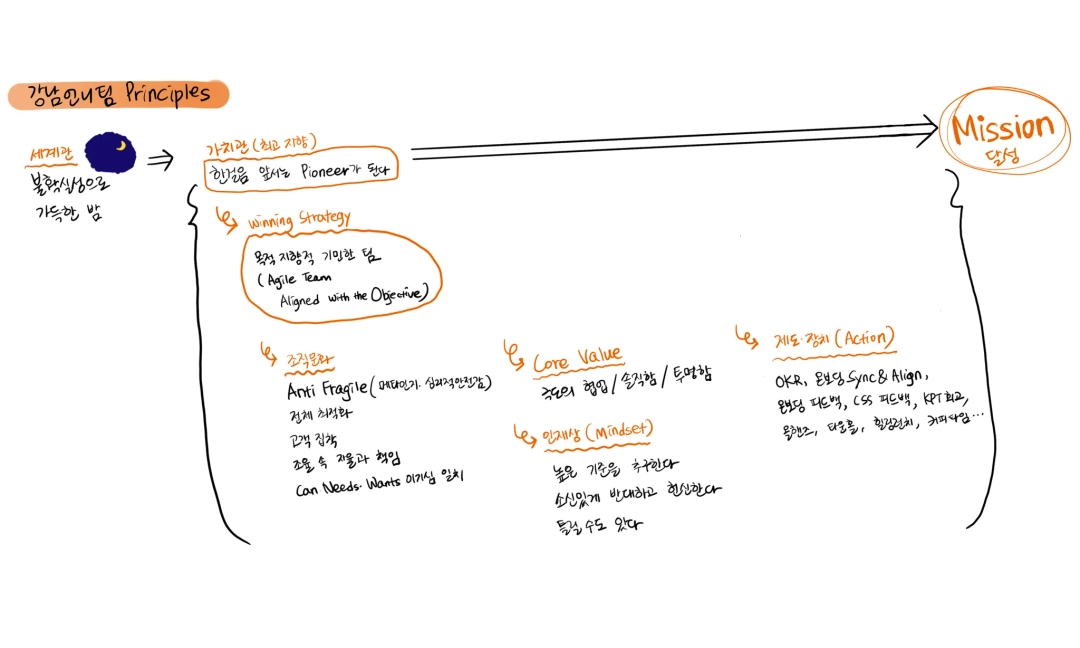 강남언니팀 Principles
세계관
불확실성으로
가득한 밤
가치관 (최고 지향)
한걸음 앞서는 Pioneer가 된다
Mission
달성
Winning Strategy
목적 지향적 기민한 팀
(Agile Team
Aligned with the Objective)
조직문화
Anti Fragile (메타인지. 심리적안전감)
전체 최적화
고객 집착
조율 속 자율과 책임
Can Needs·Wants 이기심 일치
Core Value
극도의 협업 / 솔직함 / 투명함
인재상 (Mindset)
높은 기준을 추구한다
소신있게 반대하고 헌신한다
틀릴 수도 있다
제도·장치 (Action)
OKR, 온보딩 Sync & Align,
온보딩 피드백, CSS 피드백, KPT 회고,
올핸즈, 타운홀, 힐링런치, 커피타임...